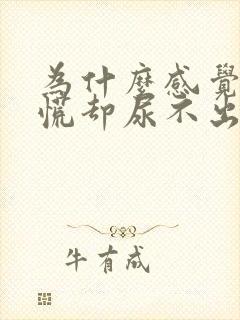 為什麼感覺
慌却尿不出
牛有成